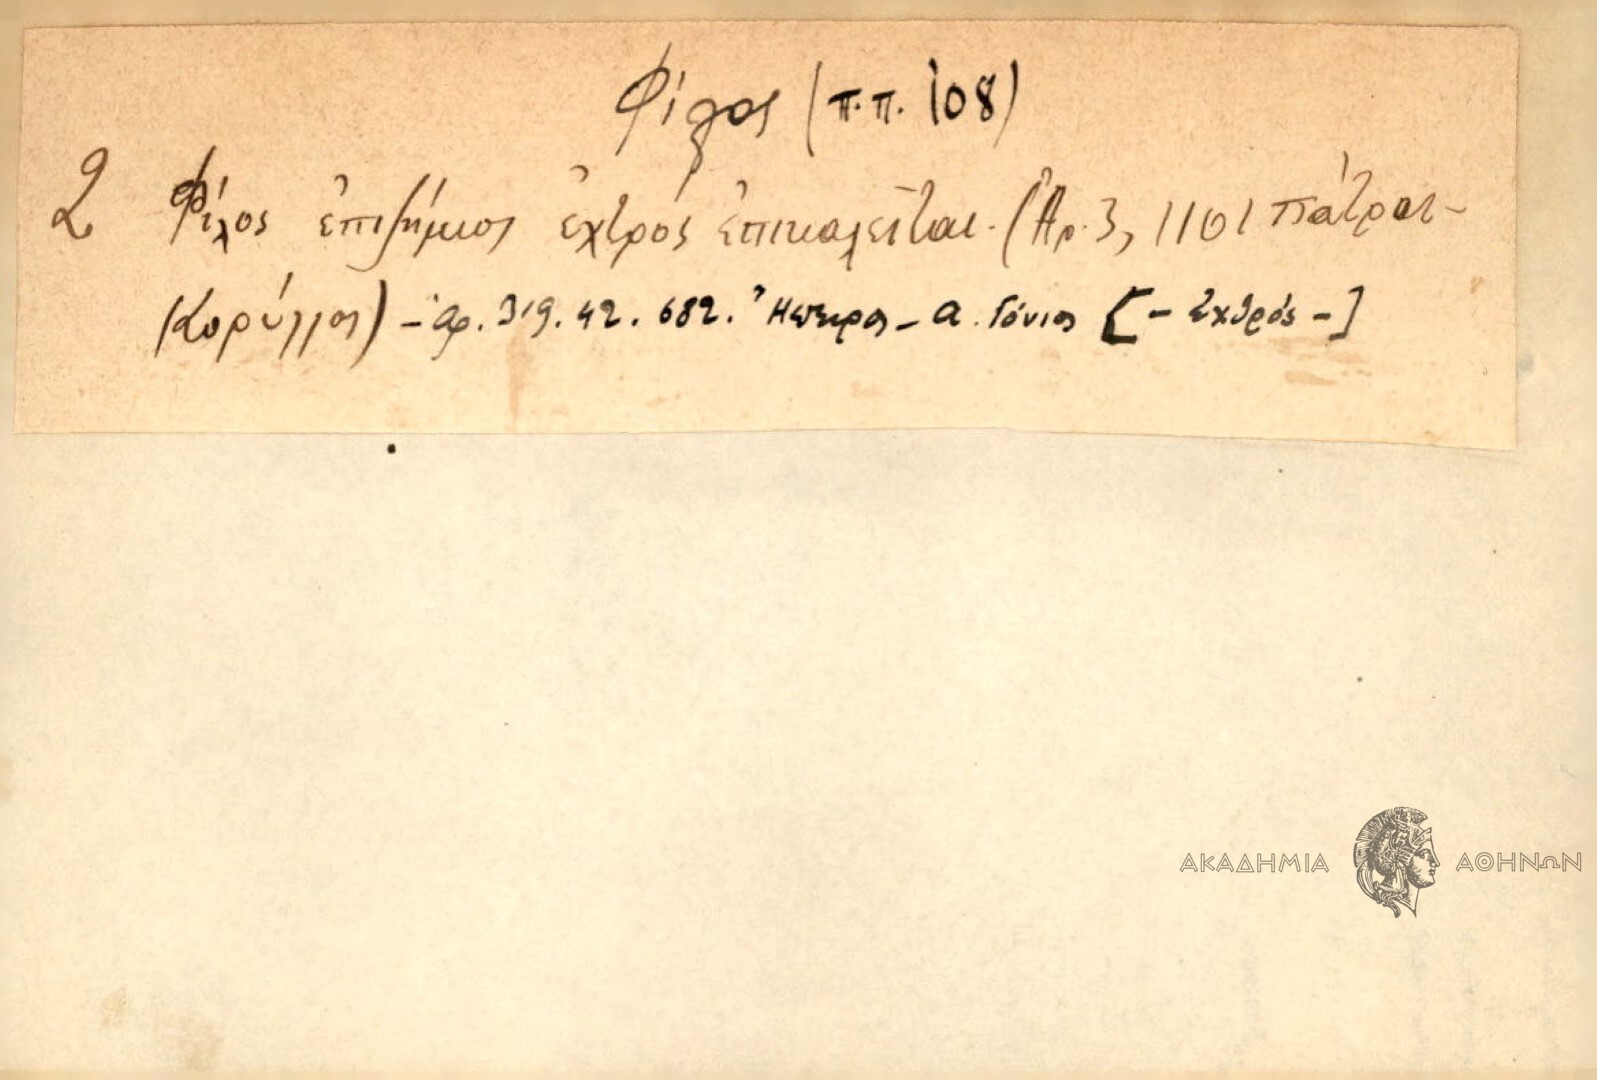 Φίλος (π.π. 108)
2 Φίλος ἐπιζήμιος ἐχτρός ἐπικαλεῖται. (Ἀρ. 3, 1101 Πάτραι-
(Κορύλλος) - ἀρ. 319. 42. 682. Ἤπειρος - Α. Γόνιος [- ἐχθρός -]
ΑΚΑΔΗΜΙΑ ΑΘΗΝΩΝ